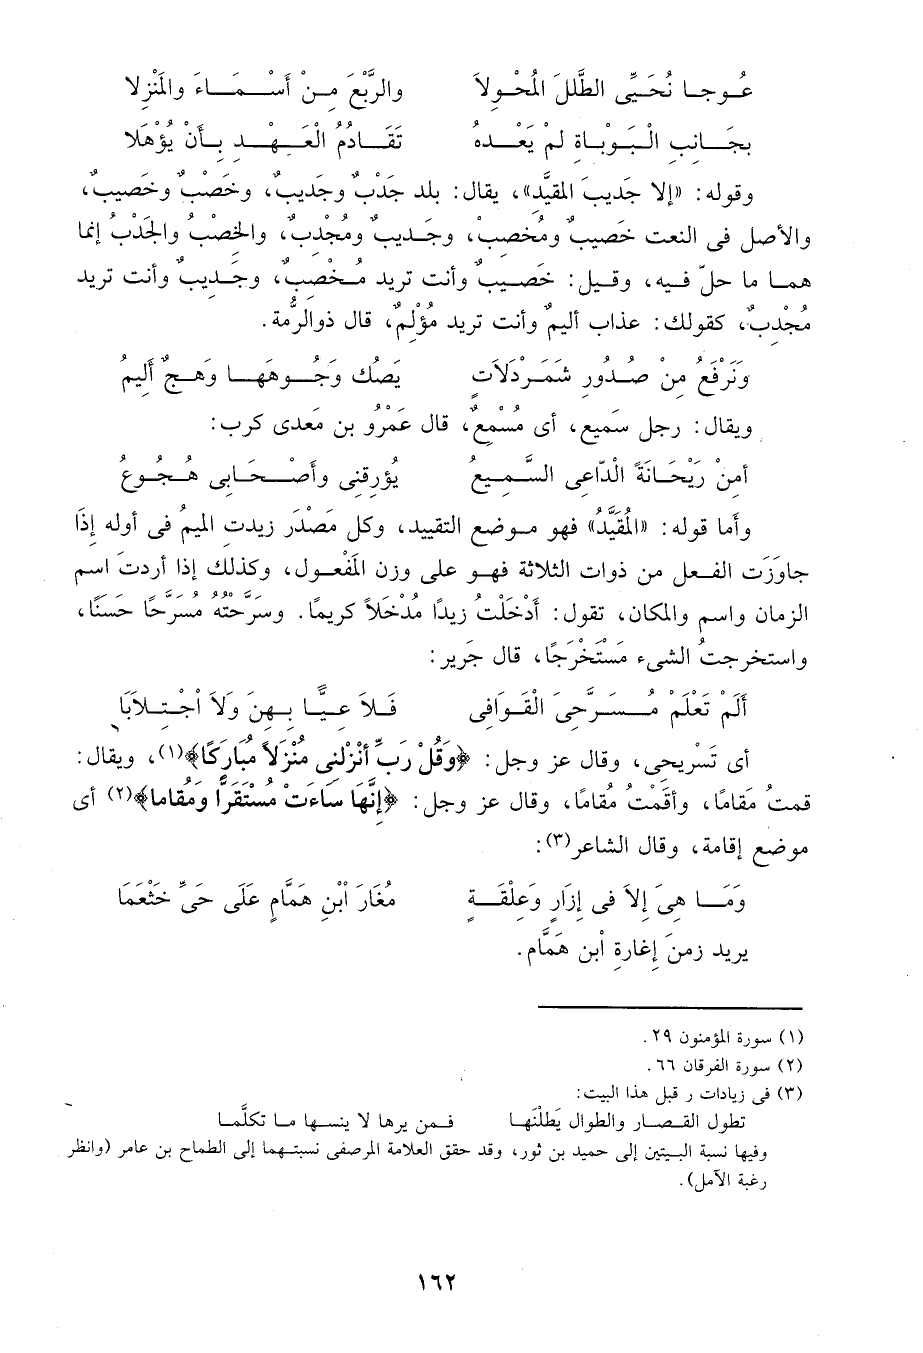 عُوجا نُحَيِّى الطَّلَلَ المُحْوِلاَ والرَّبْعَ مِنْ أَسْمَاءَ والمَنْزِلا
بجَانبِ البَوْبَاةِ لَمْ يَعْدُه تَقَادُمُ العَهْدِ بأَنْ يُؤْهَلا
وقوله: «إلا جَدِيبَ المقَيَّد»، يقال: بلد جَدْبٌ وجَدِيبٌ، وخَصْبٌ وخَصِيبٌ،
والأصل فى النعت خَصِيبٌ ومُخْصِبٌ، وجَدِيبٌ ومُجْدِبٌ، والخِصْبُ والجَدْبُ إنما
هما ما حلّ فيه، وقيل: خَصِيبٌ وأنت تريد مُخْصِبٌ، وجَدِيبٌ وأنت تريد
مُجْدِبٌ، كقولك: عذاب أليمٌ وأنت تريد مُؤْلِمٌ، قال ذوالرُّمة.
ونَرْفَعُ مِن صُدُورِ شَمَرْدَلاَتٍ يَصُكُ وُجُوهَها وَهَجٌ أَلِيمُ
ويقال: رجل سَمِيع، أى مُسْمِعٌ، قال عَمْرُو بن مَعدى كَرِب:
أمِنْ رَيْحَانَةَ الدَّاعِى السَّمِيعُ يُؤَرقنِى وأصْحَابِى هُجُوعُ
وأما قوله: «المُقَيَّدُ» فهو موضع التقييد، وكل مَصْدَر زيدت الميم فى أوله إذَا
جاوَزَت الفعل من ذوات الثلاثة فهو على وزن المَفْعول، وكذلك إذا أردتَ اسم
الزمان واسم والمكان، تقول: أدْخَلْتُ زيدًا مُدْخَلاً كريمًا. وسَرحْتُه مُسَرَّحًا حَسَنًا،
واستخرجتُ الشىء مَسْتَخْرَجًا، قال جَرِير:
أَلَمْ تَعْلَمْ مُسَرَّحِىَ الْقَوَافِى فَلاَ عِيًّا بِهِنَّ وَلاَ اجْتِلاَبَا
أى تَسْرِيحِى، وقال عز وجل: ﴿وَقُلْ رَبِّ أنْزِلْنِى مُنْزَلاً مُبَارَكًا﴾(١)، ويقال:
قمتُ مَقَامًا، وأقَمْتُ مُقامًا، وقال عز وجل: ﴿إِنَّهَا سَاءَتْ مُسْتَقَرًّا وَمُقَاما﴾(٢) أى
موضع إقامة، وقال الشاعر(٣):
وَمَا هِىَ إلاَ فى إزَارٍ وَعِلْقَةٍ مُغَارَ ابْنِ هَمَّامٍ عَلَى حَىِّ خَثْعَمَا
يريد زمنَ إغارةِ ابْنِ هَمَّامٍ.
(١) سورة المؤمنون ٢٩.
(٢) سورة الفرقان ٦٦.
(٣) فى زيادات ر قبل هذا البيت:
تطول القصار والطوال يَطُلْنَها فمن يرها لا ينسها ما تكلَّما
وفيها نسبة البيتين إلى حميد بن ثور، وقد حقق العلامة المرصفى نسبتهما إلى الطماح بن عامر (وانظر
رغبة الآمل).
١٦٢